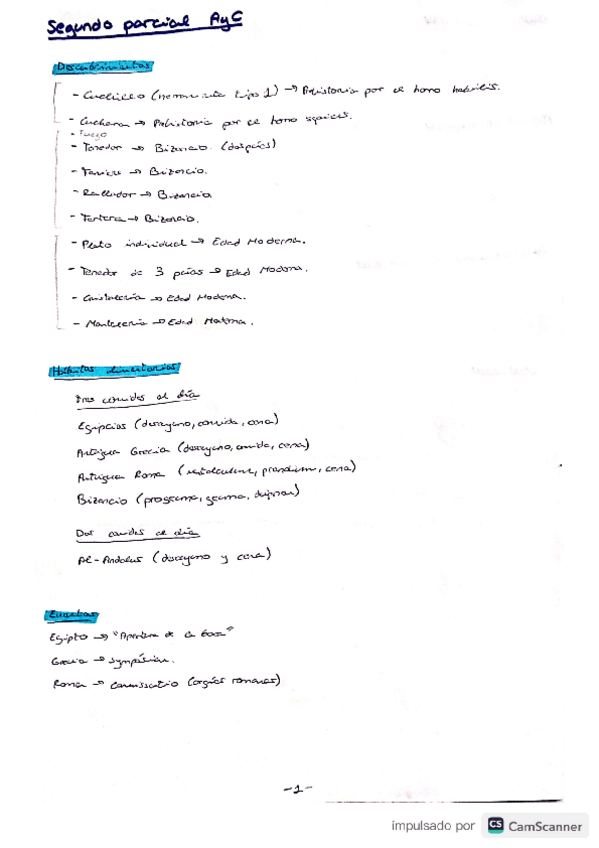 Segundo parcial AyC
Descubrimientos
- Cuchillo (herramienta tipo 1) → Prehistoria por el homo habilis.
- Cuchara → Prehistoria por el homo sapiens.
- Fuego
- Tenedor → Bizancio. (dos púas)
→ Bizancio.
- Rallador → Bizancio
- Tartera → Bizancio.
- Plato individual → Edad Moderna.
- Tenedor de 3 púas → Edad Moderna.
- Cristalería → Edad Moderna.
- Mantelería → Edad Moderna.
Hábitos alimentarios
Tres comidas al día
Egipcios (desayuno, comida, cena)
Antigua Grecia (desayuno, comida, cena)
Antigua Roma (prandium, cena)
Bizancio (progeuma, geuma, deipnon)
Dos comidas al día
Al-Andalus (desayuno y cena)
Egipto → "Apertura de la boca"
Grecia → symposium.
Roma → (orgías romanas)
-1-
impulsado por CS CamScanner